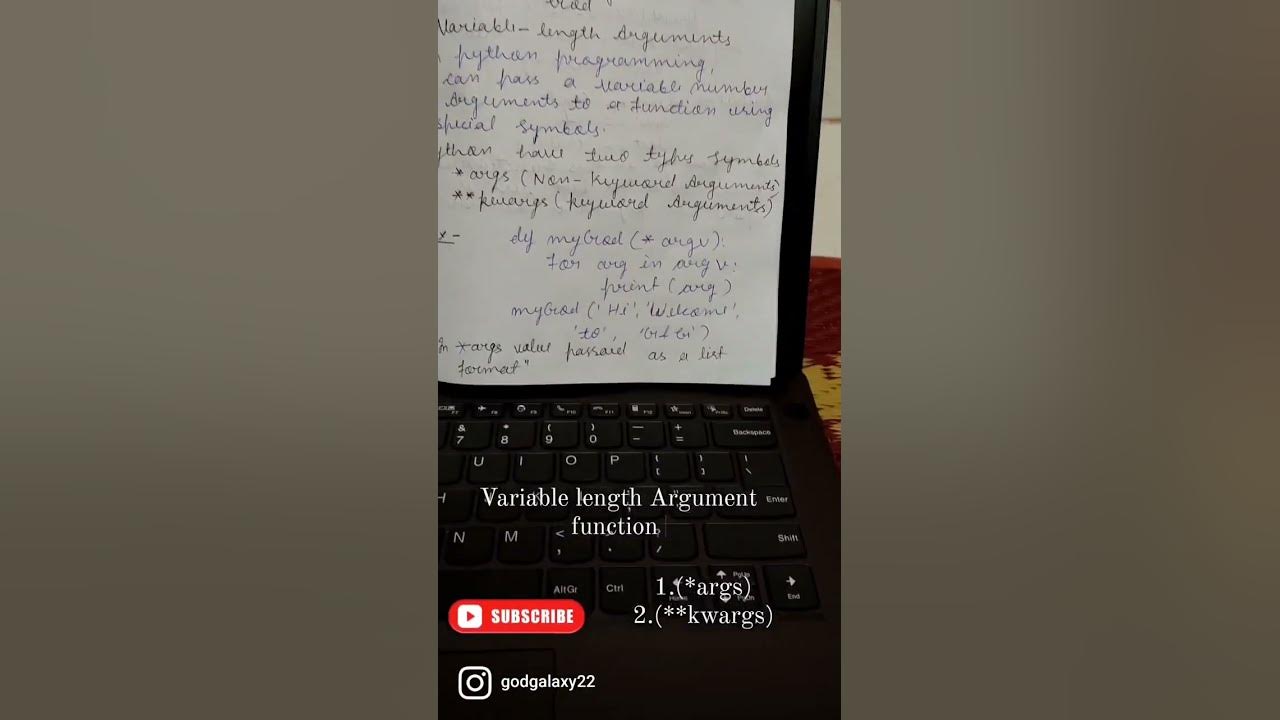 Variable-length Arguments
python programming,
can pass a variable number
Arguments to a function using
special symbols.
ython have two types symbols
*args (Non-Keyword Arguments)
**kwargs (keyword Arguments)
x-
def myGod(*argv):
for arg in argv:
print(arg)
myGod('Hi', 'Welcome',
'to',
In *args value passed as a list
format"
F7 F8 F9 F10 F11 F12 Delete
& 7 * 8 ( 9 ) 0 — - + = Backspace
U I O P { [ } ] | \
Variable length Argument
Enter
function
N M < , > . ? / Shift
AltGr Ctrl PgUp End
1.(*args)
SUBSCRIBE
2.(**kwargs)
godgalaxy22